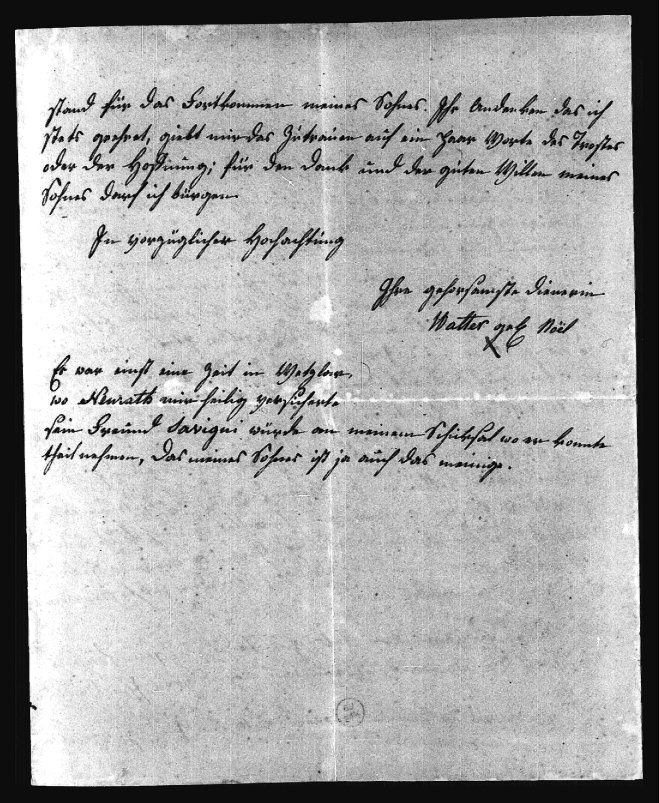 stand für das Fortkommen meines Sohnes. Ihr Andenken das ich
stets geehret, giebt mir das Zutrauen auf ein paar Worte des Trostes
oder der Hoffnung; für den Dank und der guten Willen meines
Sohnes darf ich bürgen
In vorzüglicher Hochachtung
Ihre gehorsamste Dienerin
Walter geb Noël
Es war einst eine Zeit in Wetzlar,
wo Neurath mir heilig versicherte
sein Freund Savigni würde an meinem Schicksal wo er konnte
theil nehmen, das meines Sohnes ist ja auch das meinige.